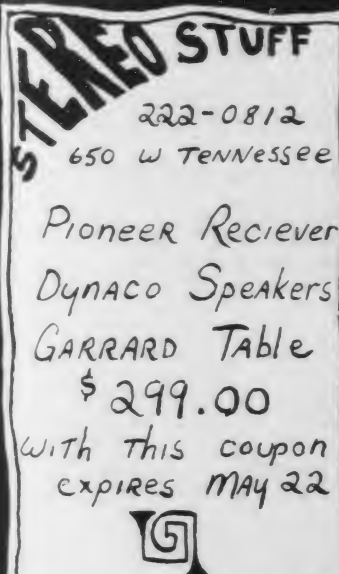 STEREO STUFF
222-0812
650 W TENNESSEE
PIONEER RECIEVER
DYNACO SPEAKERS
GARRARD TABLE
$299.00
WITH THIS COUPON
EXPIRES MAY 22